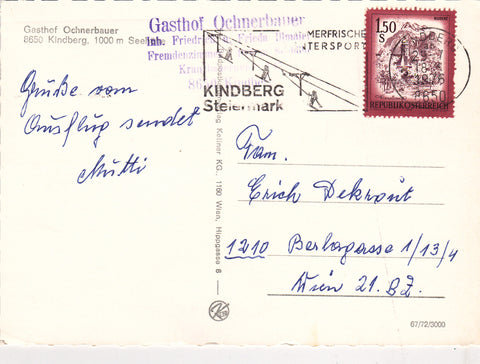 Gasthof Ochnerbauer
8650 Kindberg, 1000 m
Gasthof Ochnerbauer
Inh. Friedrich
Frieda
Fremdenzimmer
MERFRISCHE
TERSPORT
KINDBERG
Steiermark
1,50
S
REPUBLIK ÖSTERREICH
8650
Grüße vom
Ausflug sendet
Mutti
Verlag Kellner KG., 1160 Wien, Hippgasse 6
Fam.
Erich Dekrout
1210 Berlagasse 1/13/4
Wien 21. BZ.
67/72/3000